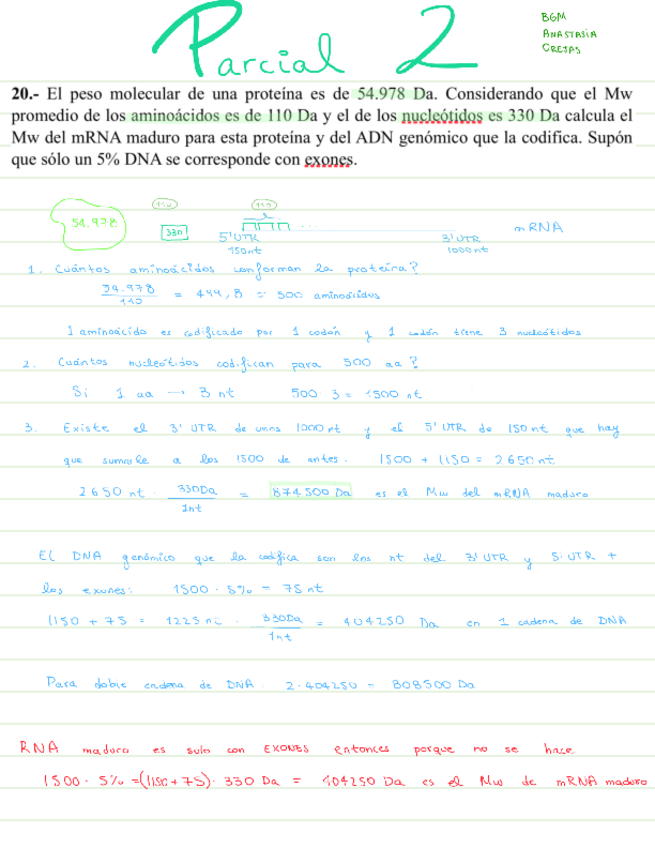 Parcial 2
BGM
ANASTASIA
CRETAS
20.- El peso molecular de una proteína es de 54.978 Da. Considerando que el Mw
promedio de los aminoácidos es de 110 Da y el de los nucleótidos es 330 Da calcula el
Mw del mRNA maduro para esta proteína y del ADN genómico que la codifica. Supón
que sólo un 5% DNA se corresponde con exones.
54.978
110
330
110
mRNA
5'UTR
150nt
3'UTR
1000nt
1. Cuántos aminoácidos conforman la proteína?
54.978 / 110 = 499,8 ≈ 500 aminoácidos
1 aminoácido es codificado por 1 codón y 1 codón tiene 3 nucleótidos
2. Cuántos nucleótidos codifican para 500 aa?
Si 1 aa → 3 nt 500 · 3 = 1500 nt
3. Existe el 3' UTR de unos 1000 nt y el 5' UTR de 150 nt que hay
que sumarle a los 1500 de antes. 1500 + 1150 = 2650 nt
2650 nt · 330Da / 1nt = 874.500 Da es el Mw del mRNA maduro
El DNA genómico que la codifica son los nt del 3' UTR y 5' UTR +
los exones: 1500 · 5% = 75 nt
1150 + 75 = 1225 nt · 330Da / 1nt = 404250 Da en 1 cadena de DNA
Para doble cadena de DNA: 2 · 404250 = 808500 Da
RNA maduro es solo con EXONES entonces porque no se hace
1500 · 5% = (1150 + 75) · 330 Da = 404250 Da es el Mw de mRNA maduro